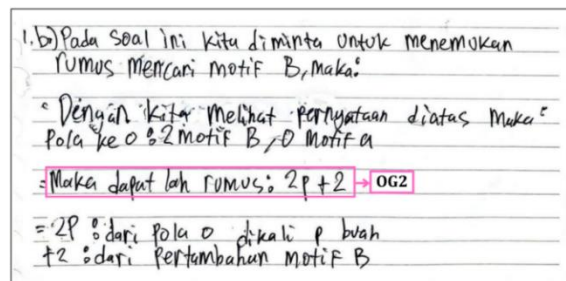 1. b) Pada soal ini kita diminta untuk menemukan
rumus mencari motif B, maka:
• Dengan kita melihat pernyataan diatas maka:
Pola ke 0 : 2 motif B, 0 motif a
= Maka dapat lah rumus: 2p + 2 → OG2
= 2P : dari pola 0 dikali p buah
+2 : dari pertambahan motif B